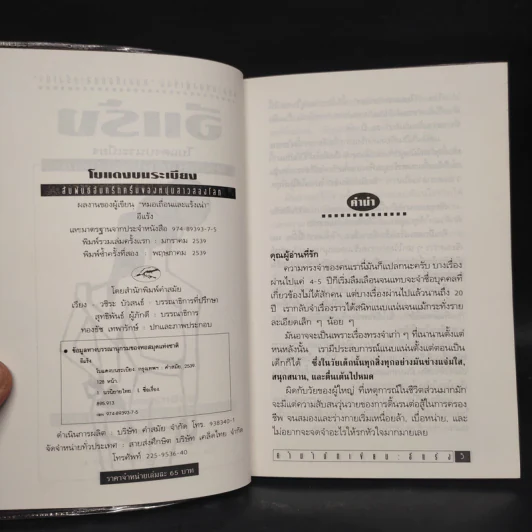 โบแดงบนระเบียง
ผลงานของผู้เขียน "หมอเถื่อนและแร้งเน่า"
อีแร้ง
เลขมาตรฐานสากลประจำหนังสือ 974-89393-7-5
พิมพ์รวมเล่มครั้งแรก : มกราคม 2539
พิมพ์ซ้ำครั้งที่สอง : พฤษภาคม 2539
โดยสำนักพิมพ์คำสมัย
เรียง - วชิระ บัวสนธ์ : บรรณาธิการที่ปรึกษา
สุทธิพันธ์ ผู้ภักดี : บรรณาธิการ
ทองธัช เทพารักษ์ : ปกและภาพประกอบ
ข้อมูลทางบรรณานุกรมของหอสมุดแห่งชาติ
อีแร้ง.
โบแดงบนระเบียง.-กรุงเทพฯ : คำสมัย, 2539
128 หน้า
1. นวนิยายไทย. I. ชื่อเรื่อง.
895.913
ISBN 974-89393-7-5
ดำเนินการผลิต : บริษัท คำสมัย จำกัด โทร. 938340-1
จัดจำหน่ายทั่วประเทศ : สายส่งศึกษิต บริษัท เคล็ดไทย จำกัด
โทรศัพท์ 225-9536-40
ราคาจำหน่ายเล่มละ 65 บาท
คำนำ
คุณผู้อ่านที่รัก
ความทรงจำของคนเรานี้มันก็แปลกนะครับ บางเรื่อง
ผ่านไปแค่ 4-5 ปีก็เริ่มลืมเลือนจนจะจำชื่อบุคคลที่
เกี่ยวข้องไม่ได้สักคน แต่บางเรื่องผ่านไปแล้วนานถึง 20
ปี เรากลับจำเรื่องราวได้สนิทแนบแน่นแม้กระทั่งราย
ละเอียดเล็ก ๆ น้อย ๆ
มันอาจจะเป็นเพราะเรื่องทรงจำเก่า ๆ ที่เนานานตั้งแต่
หนหลังนั้น เรามีประสบการณ์แนบแน่นตั้งแต่ตอนเป็น
เด็กก็ได้ ซึ่งในวัยเด็กนั้นทุกสิ่งทุกอย่างมันช่างแจ่มใส,
สนุกสนาน, และตื่นเต้นไปหมด
ผิดกับวัยของผู้ใหญ่ ที่เหตุการณ์ในชีวิตส่วนมากมัก
จะมีแต่ความสับสนวุ่นวายของการดิ้นรนต่อสู้ในการครอง
ชีพ จนสมองและร่างกายเริ่มเหนื่อยล้า, เบื่อหน่าย, และ
ไม่อยากจะจดจำอะไรให้รกหัวใจมากมายเลย
5